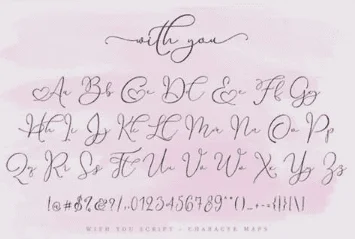 with you
Aa Bb Cc Dd Ee Ff Gg
Hh Ii Jj Kk Ll Mm Nn Oo Pp
Qq Rr Ss Tt Uu Vv Ww Xx Yy Zz
WITH YOU SCRIPT - CHARACTER MAPS